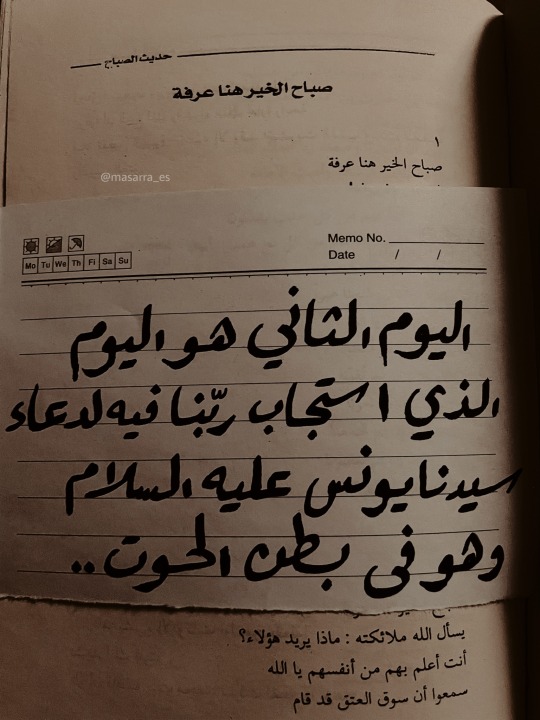 حديث الصباح
صباح الخير هنا عرفة
١
صباح الخير هنا عرفة
@masarra_es
Memo No.
Mo Tu We Th Fi Sa Su
Date / /
اليوم الثاني هو اليوم
الذي استجاب ربّنا فيه لدعاء
سيدنا يونس عليه السلام
وهو في بطن الحوت..
يسأل الله ملائكته : ماذا يريد هؤلاء؟
أنت أعلم بهم من أنفسهم يا الله
سمعوا أن سوق العتق قد قام